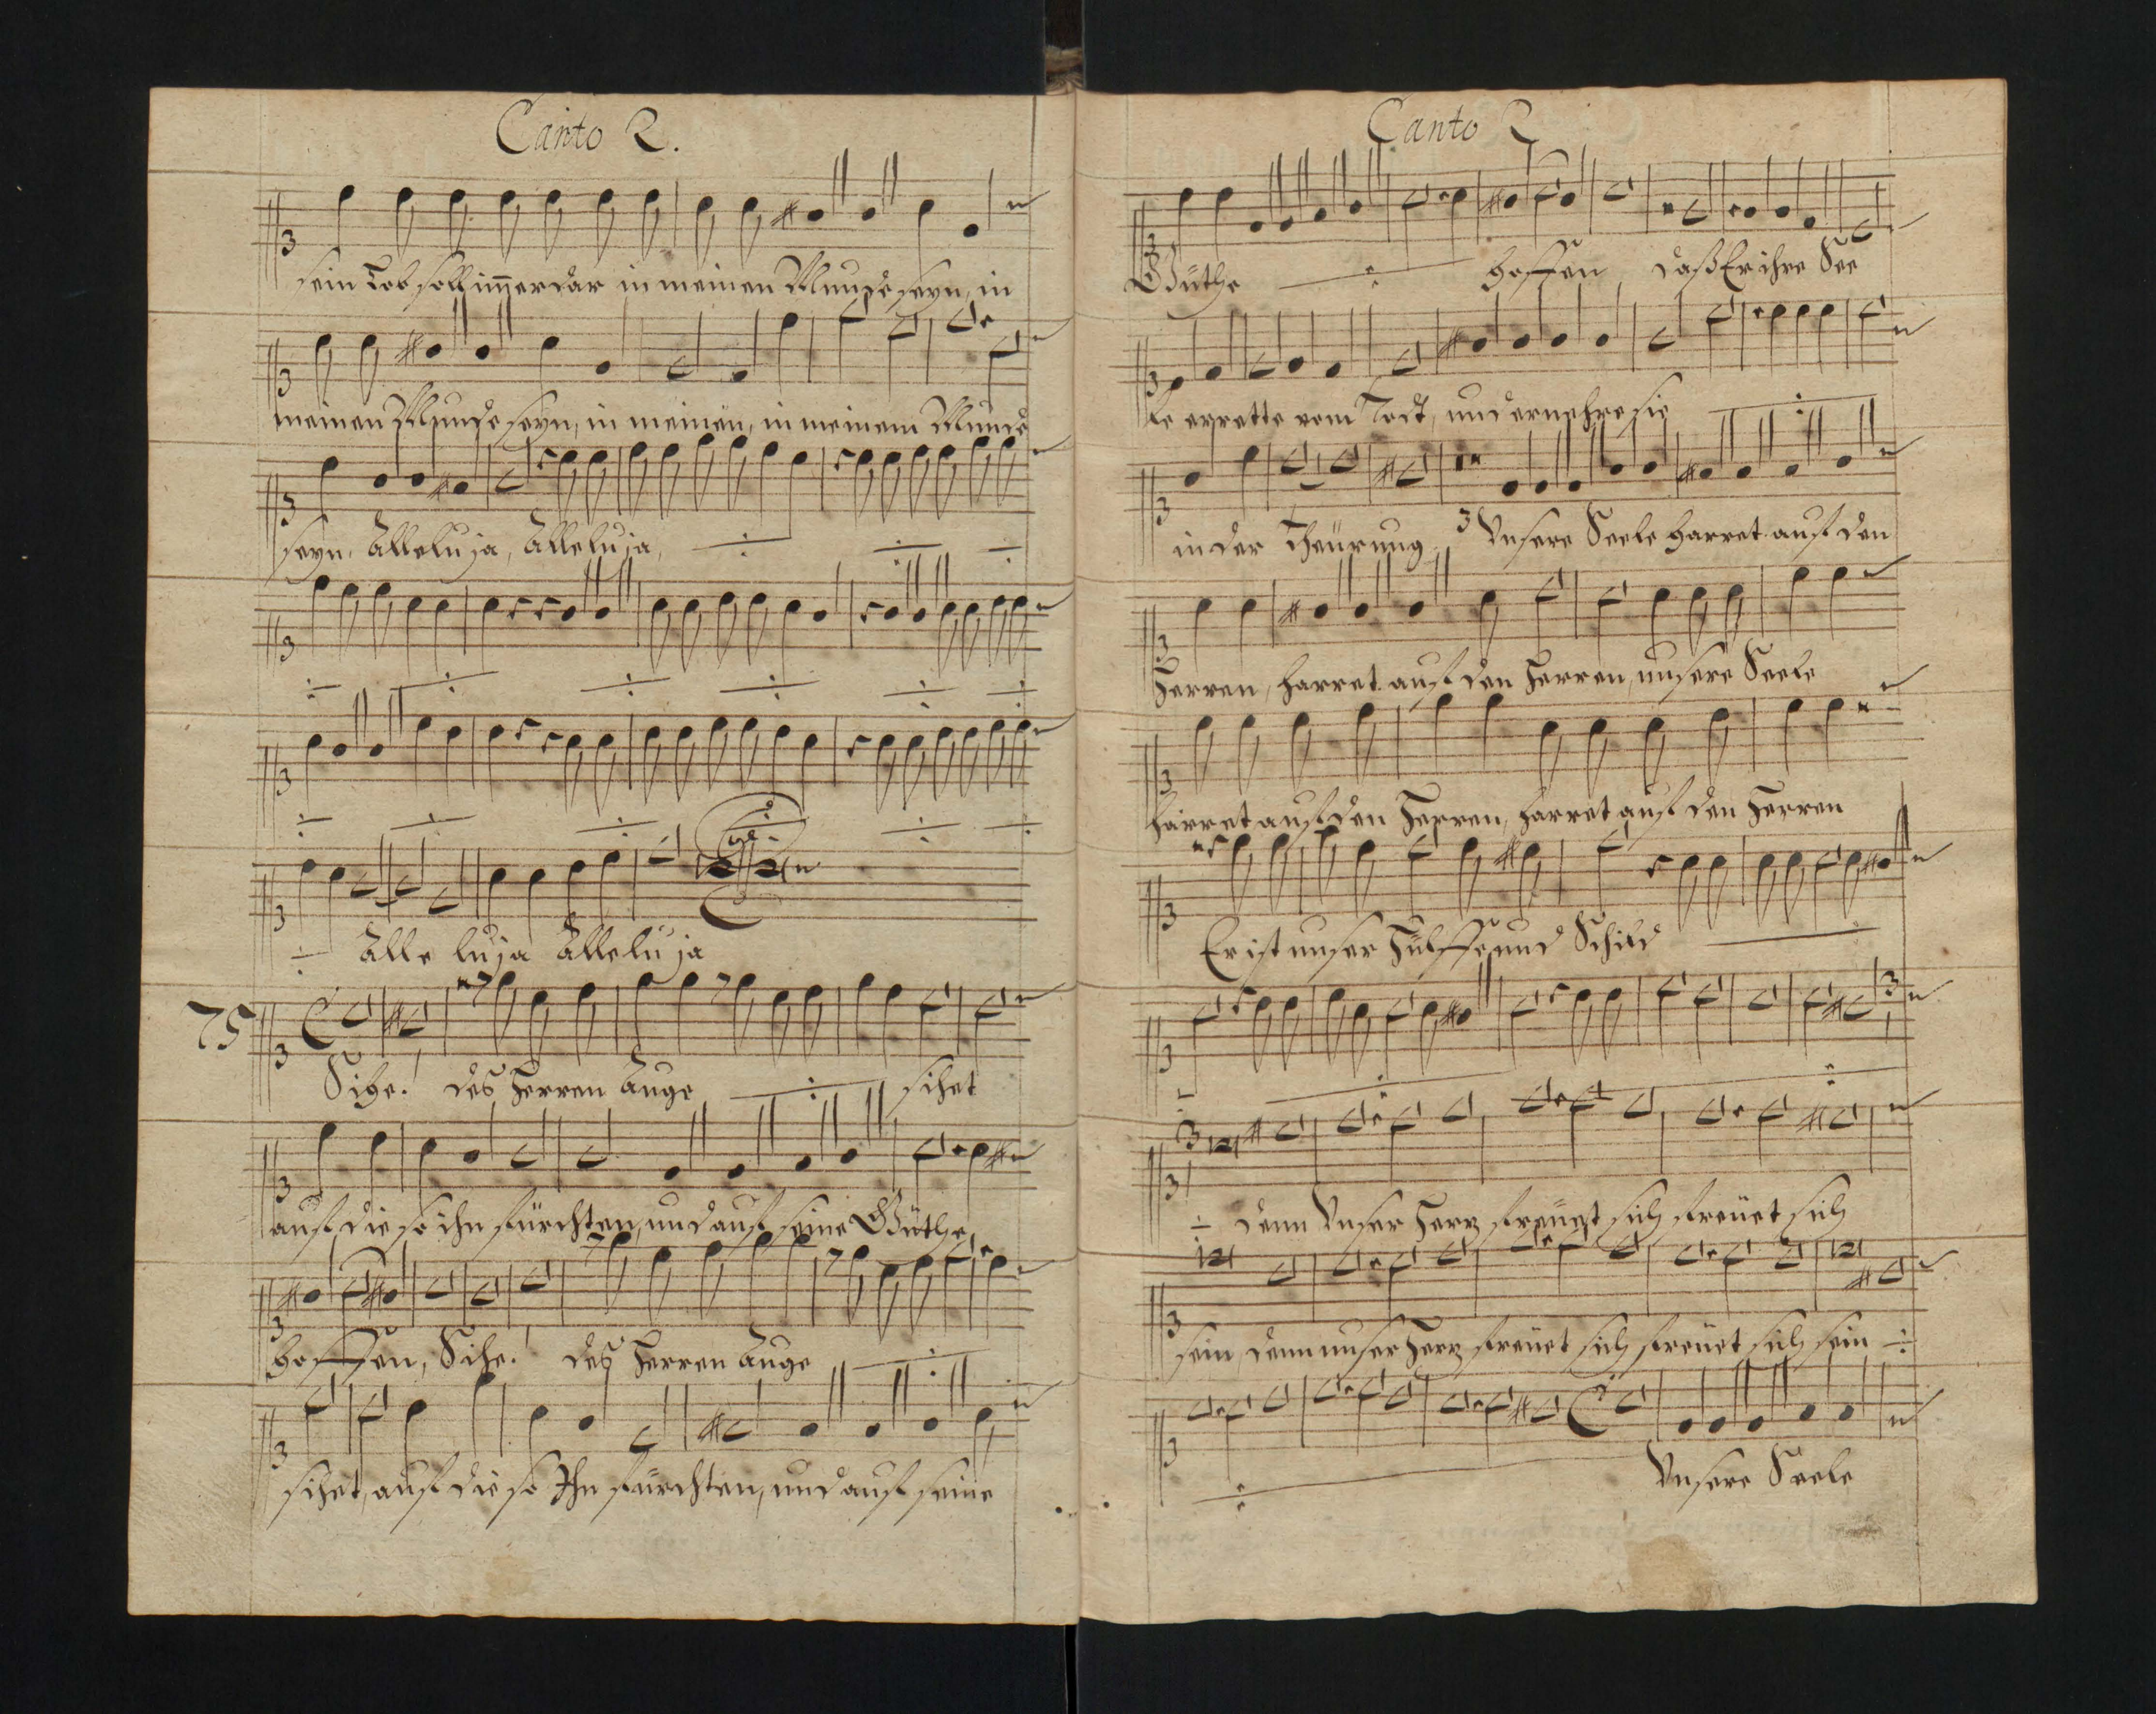 Canto 2.
sein Lob soll im̄erdar in meinen Munde seyn, in
meinen Munde seyn, in meinen, in meinem Munde
seyn, Alleluja, Alleluja,
Alleluja Alleluja
75
Sihe! des Herren Auge sihet
auf die so ihn fürchten, und auf seine Güthe,
hoffen, Sihe! des Herren Auge
sihet, auf die so Ihn fürchten, und auf seine
Canto 2
Güthe hoffen daß Er ihre See
le errette vom Todt, und ernehre sie
in der Theürung. Unsere Seele harret auf den
Herren, harret auf den Herren, unsere Seele
harret auf den Herren, harret auf den Herren
Er ist unser Hülffe und Schild
denn Unser Herz freüet sich freüet sich
sein, denn unser Herz freüet sich freüet sich sein
Unsere Seele